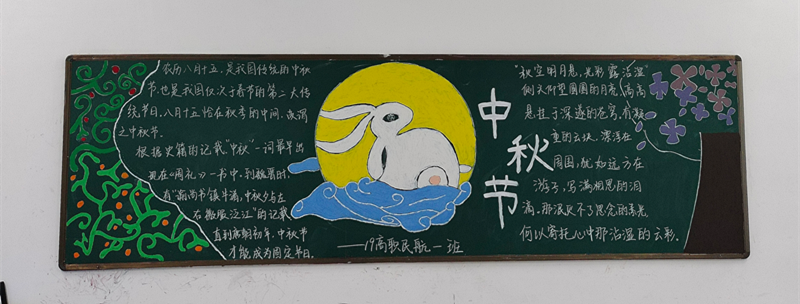 农历八月十五,是我国传统的中秋
节,也是我国仅次于春节的第二大传
统节日,八月十五恰在秋季的中间,故谓
之中秋节。
根据史籍的记载“中秋”一词最早出
现在《周礼》一书中,到魏晋时,
有“谕尚书镇牛渚,中秋夕与左
右微服泛江”的记载
直到唐朝初年,中秋节
才能成为固定节日。
中秋节
——19高职民航一班
“秋空明月悬,光彩露沾湿
侧天际望圆圆的月亮,高高
悬挂于深邃的苍穹,有
的云块,漂浮在
周围,犹如远方在
游子,写满相思的泪
滴。那泪
何以寄托心中那沾湿的云彩。